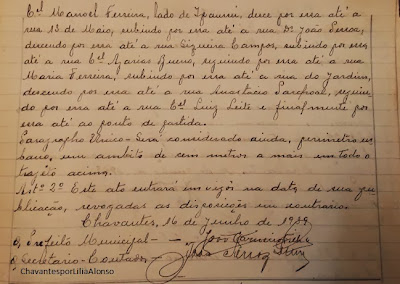 Cel Manoel Ferreira, lado de Ipaussú, desce por essa até a
rua 13 de Maio, subindo por essa até a rua Dr João Pessoa,
descendo por essa até a rua Siqueira Campos, subindo por essa
até a rua Cel Azarias Bueno, seguindo por essa até a rua
Maria Ferreira, subindo por essa até a rua do Jardim,
descendo por essa até a rua Anastacio, seguin
do por essa até a rua Cel Luiz Leite e finalmente por
essa até ao ponto de partida.
Paragrapho Unico - Será considerado ainda, perimetro ur
bano, um ambito de cem metros a mais em todo o
trajeto acima.
Artº 2º Este ato entrará em vigor na data de sua pu
blicação, revogadas as disposições em contrario.
Chavantes, 16 de Junho de
O Prefeito Municipal - -
O Secretario - Contador -
ChavantesporLiliaAlonso